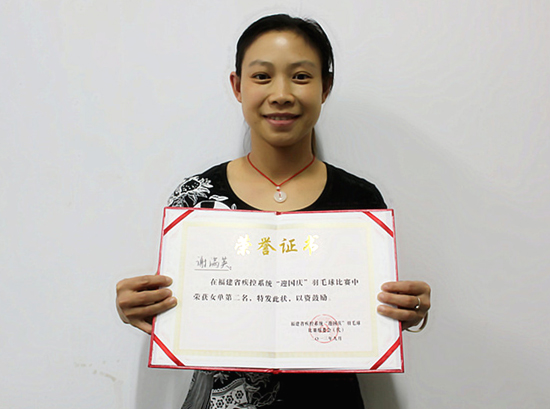 荣誉证书
谢满英
在福建省疾控系统“迎国庆”羽毛球比赛中
荣获女单第二名，特发此状，以资鼓励。
福建省疾控系统“迎国庆”羽毛球